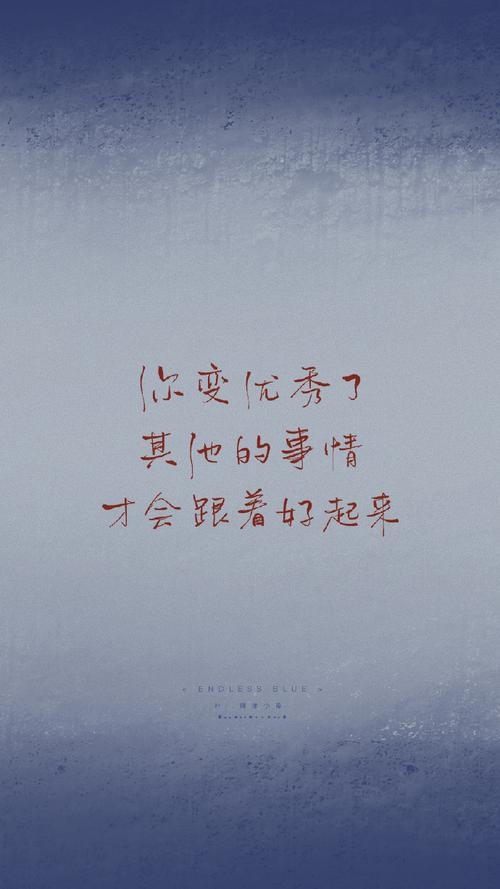 你变优秀了
其他的事情
才会跟着好起来
< ENDLESS BLUE >